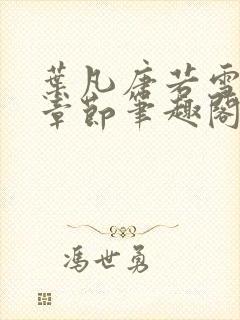 葉凡唐若雪
章節筆趣閣
馮世勇